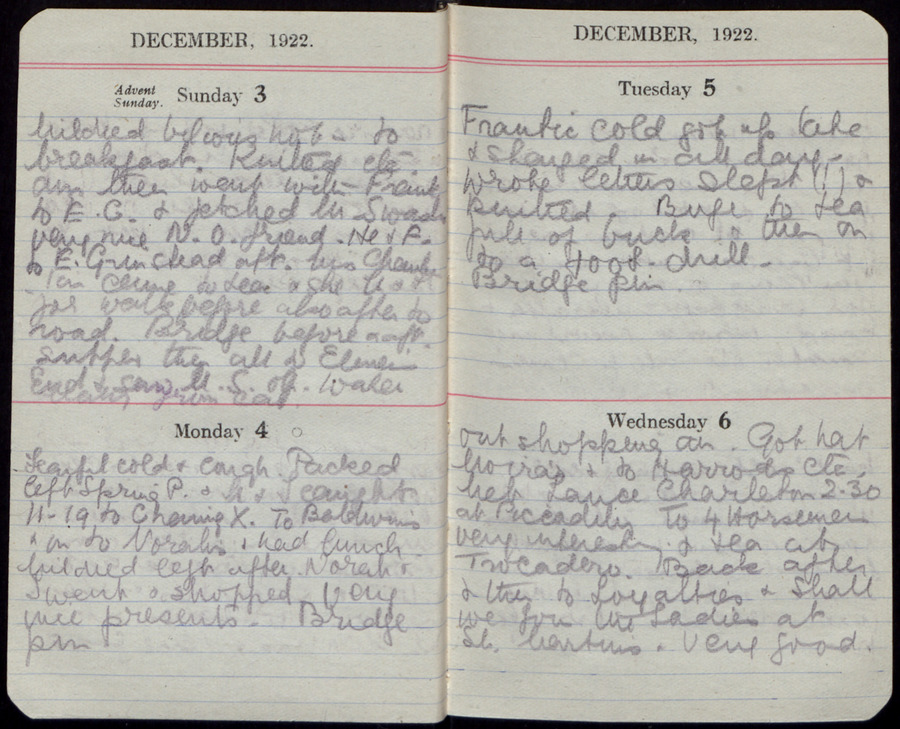 DECEMBER, 1922.
Advent Sunday. Sunday 3
Mildred & not - to
breakfast. Knitted etc.
am then went with Frank
to E. G. & fetched
very nice N. O. friend. He & F.
to E. Grinstead aft. his
came to tea & she &
for walk before also after to
road. Bridge before & aft.
supper then all to Elmers
End & saw M. S. off. Water
from car.
Monday 4
Fearful cold & cough. Packed
left Spring P. & & I caught
11-19 to Charing X. To Baldwins
& on to Norahs & had lunch.
Mildred left after. Norah &
I went & shopped. Very
nice presents. Bridge
pm
DECEMBER, 1922.
Tuesday 5
Frantic cold got up late
& stayed in all day -
wrote letters slept (!) &
knitted. Bufe to tea
full of bucks & then on
to a foot drill.
Bridge pm.
Wednesday 6
out shopping am. Got hat
Moira's & to Harrods etc.
Met Lance Charleton 2.30
at Piccadilly to 4 Horsemen
very interesting & tea at
Trocadero. Back after
& then to Loyalties & Shall
we join the Ladies at
St. Martins. Very good.